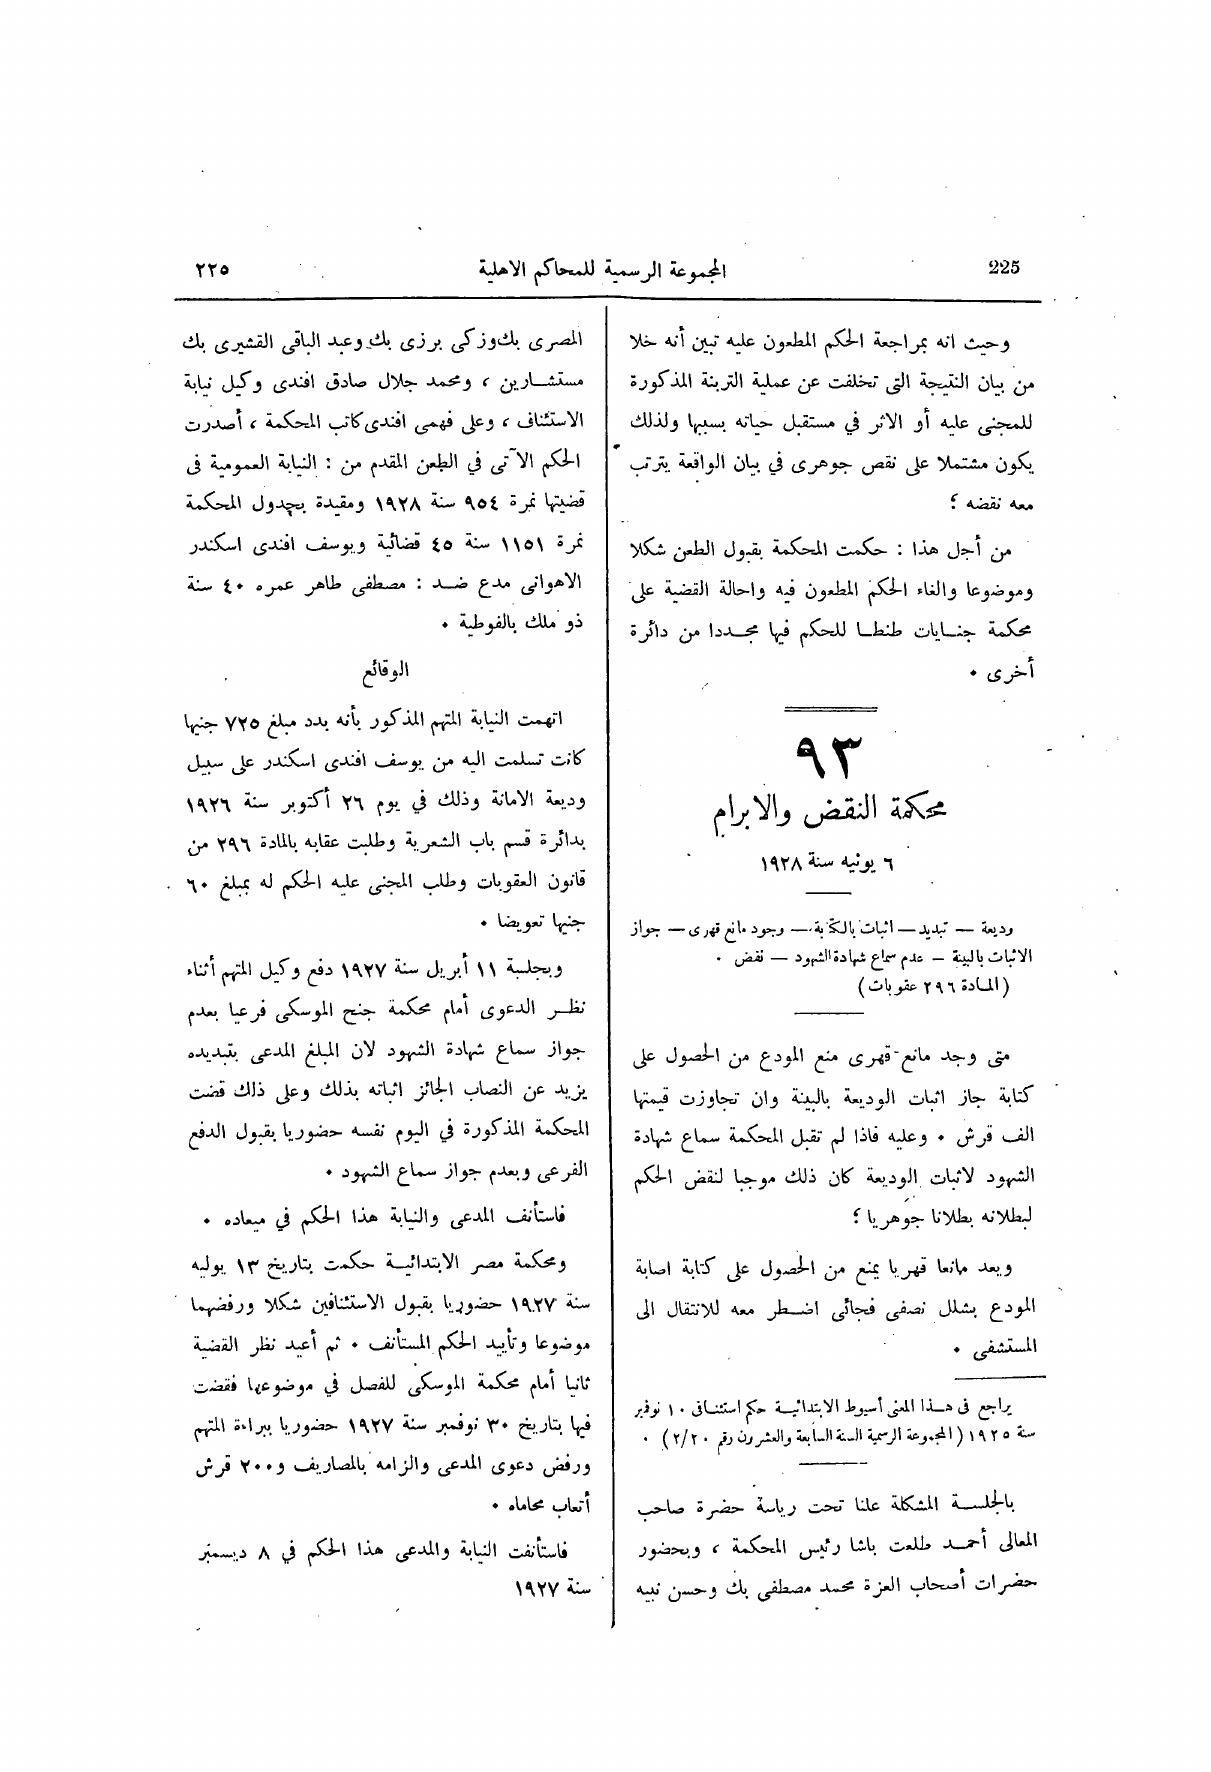 225 المجموعة الرسمية للمحاكم الاهلية ٢٢٥
وحيث انه بمراجعة الحكم المطعون عليه تبين أنه خلا
من بيان النتيجة التى تخلفت عن عملية التربنة المذكورة
للمجنى عليه أو الاثر في مستقبل حياته بسببها ولذلك
يكون مشتملا على نقص جوهرى في بيان الواقعة يترتب
معه نقضه ؟
من أجل هذا : حكمت المحكمة بقبول الطعن شكلا
وموضوعا والغاء الحكم المطعون فيه واحالة القضية على
محكمة جنايات طنطا للحكم فيها مجددا من دائرة
أخرى .
٩٣
محكمة النقض والابرام
٦ يونيه سنة ١٩٢٨
وديعة — تبديد — اثبات بالكتابة — وجود مانع قهرى — جواز
الاثبات بالبينة — عدم سماع شهادة الشهود — نقض .
(المادة ٢٩٦ عقوبات)
متى وجد مانع قهرى منع المودع من الحصول على
كتابة جاز اثبات الوديعة بالبينة وان تجاوزت قيمتها
الف قرش . وعليه فاذا لم تقبل المحكمة سماع شهادة
الشهود لاثبات الوديعة كان ذلك موجبا لنقض الحكم
لبطلانه بطلانا جوهريا ؟
ويعد مانعا قهريا يمنع من الحصول على كتابة اصابة
المودع بشلل نصفى فجائى اضطر معه للانتقال الى
المستشفى .
يراجع فى هذا المعنى أسيوط الابتدائية حكم استئنافى ١٠ نوفمبر
سنة ١٩٢٥ (المجموعة الرسمية السنة السابعة والعشرون رقم ٢/٢٠) .
بالجلسة المشكلة علنا تحت رياسة حضرة صاحب
المعالى أحمد طلعت باشا رئيس المحكمة ، وبحضور
حضرات أصحاب العزة محمد مصطفى بك وحسن نبيه
المصرى بك وزكى برزى بك وعبد الباقى القشيرى بك
مستشارين ، ومحمد جلال صادق افندى وكيل نيابة
الاستئناف ، وعلى فهمى افندى كاتب المحكمة ، أصدرت
الحكم الآتى في الطعن المقدم من : النيابة العمومية فى
قضيتها نمرة ٩٥٤ سنة ١٩٢٨ ومقيدة بجدول المحكمة
نمرة ١١٥١ سنة ٤٥ قضائية ويوسف افندى اسكندر
الاهوانى مدع ضد : مصطفى طاهر عمره ٤٠ سنة
ذو ملك بالفوطية .
الوقائع
اتهمت النيابة المتهم المذكور بأنه بدد مبلغ ٧٢٥ جنيها
كانت تسلمت اليه من يوسف افندى اسكندر على سبيل
وديعة الامانة وذلك في يوم ٢٦ أكتوبر سنة ١٩٢٦
بدائرة قسم باب الشعرية وطلبت عقابه بالمادة ٢٩٦ من
قانون العقوبات وطلب المجنى عليه الحكم له بمبلغ ٦٠
جنيها تعويضا .
وبجلسة ١١ أبريل سنة ١٩٢٧ دفع وكيل المتهم أثناء
نظر الدعوى أمام محكمة جنح الموسكى فرعيا بعدم
جواز سماع شهادة الشهود لان المبلغ المدعى بتبديده
يزيد عن النصاب الجائز اثباته بذلك وعلى ذلك قضت
المحكمة المذكورة في اليوم نفسه حضوريا بقبول الدفع
الفرعى وبعدم جواز سماع الشهود .
فاستأنف المدعى والنيابة هذا الحكم في ميعاده .
ومحكمة مصر الابتدائية حكمت بتاريخ ١٣ يوليه
سنة ١٩٢٧ حضوريا بقبول الاستئنافين شكلا ورفضهما
موضوعا وتأييد الحكم المستأنف . ثم أعيد نظر القضية
ثانيا أمام محكمة الموسكى للفصل في موضوعها فقضت
فيها بتاريخ ٣٠ نوفمبر سنة ١٩٢٧ حضوريا ببراءة المتهم
ورفض دعوى المدعى والزامه بالمصاريف و ٢٠٠ قرش
أتعاب محاماه .
فاستأنفت النيابة والمدعى هذا الحكم في ٨ ديسمبر
سنة ١٩٢٧